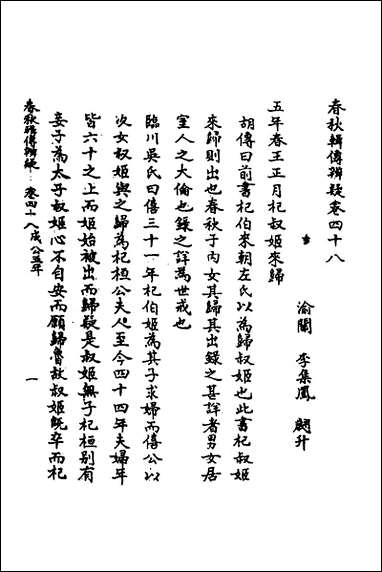 春秋輯傳辨疑卷四十八
渝關 李集鳳 翽升
五年春王正月杞叔姬來歸
胡傳曰前書杞伯來朝左氏以為歸叔姬也此書杞叔姬
來歸則出也春秋于內女其歸其出錄之甚詳者男女居
室人之大倫也錄之詳為世戒也
臨川吳氏曰僖三十一年杞伯姬為其子求婦而僖公以
次女叔姬與之歸為杞桓公夫人至今四十四年夫婦年
皆六十之上而姬始被出而歸疑是叔姬無子杞桓別有
妾子為太子叔姬心不自安而願歸魯故叔姬既卒而杞
春秋輯傳辨疑 卷四十八 成公五年
一